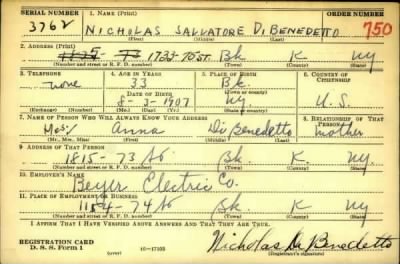 SERIAL NUMBER 1. NAME (Print) ORDER NUMBER
3762 NICHOLAS SALVATORE DI BENEDETTO 750
(First) (Middle) (Last)
2. ADDRESS (Print)
1733-70 ST. Bk K NY
(Number and street or R. F. D. number) (Town) (County) (State)
3. TELEPHONE 4. AGE IN YEARS 5. PLACE OF BIRTH 6. COUNTRY OF CITIZENSHIP
none 33 Bk.
DATE OF BIRTH (Town or county)
8-23-1907 NY U.S.
(Exchange) (Number) (Mo.) (Day) (Yr.) (State or country)
7. NAME OF PERSON WHO WILL ALWAYS KNOW YOUR ADDRESS 8. RELATIONSHIP OF THAT PERSON
Mrs. Anna Di Benedetto mother
(Mr., Mrs., Miss) (First) (Middle) (Last)
9. ADDRESS OF THAT PERSON
1815-73 St Bk. K NY
(Number and street or R. F. D. number) (Town) (County) (State)
10. EMPLOYER'S NAME
Beyer Electric Co.
11. PLACE OF EMPLOYMENT OR BUSINESS
1154-74 St Bk. K NY
(Number and street or R. F. D. number) (Town) (County) (State)
I AFFIRM THAT I HAVE VERIFIED ABOVE ANSWERS AND THAT THEY ARE TRUE.
REGISTRATION CARD
D. S. S. Form 1 (over) 16-17105 Nicholas Di Benedetto
(Registrant's signature)